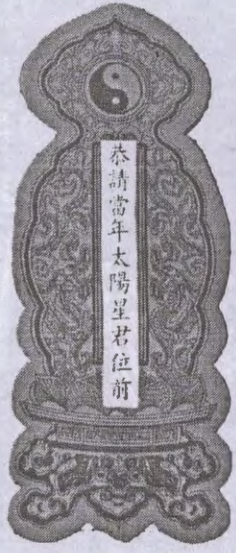 恭請當年太陽星君位前